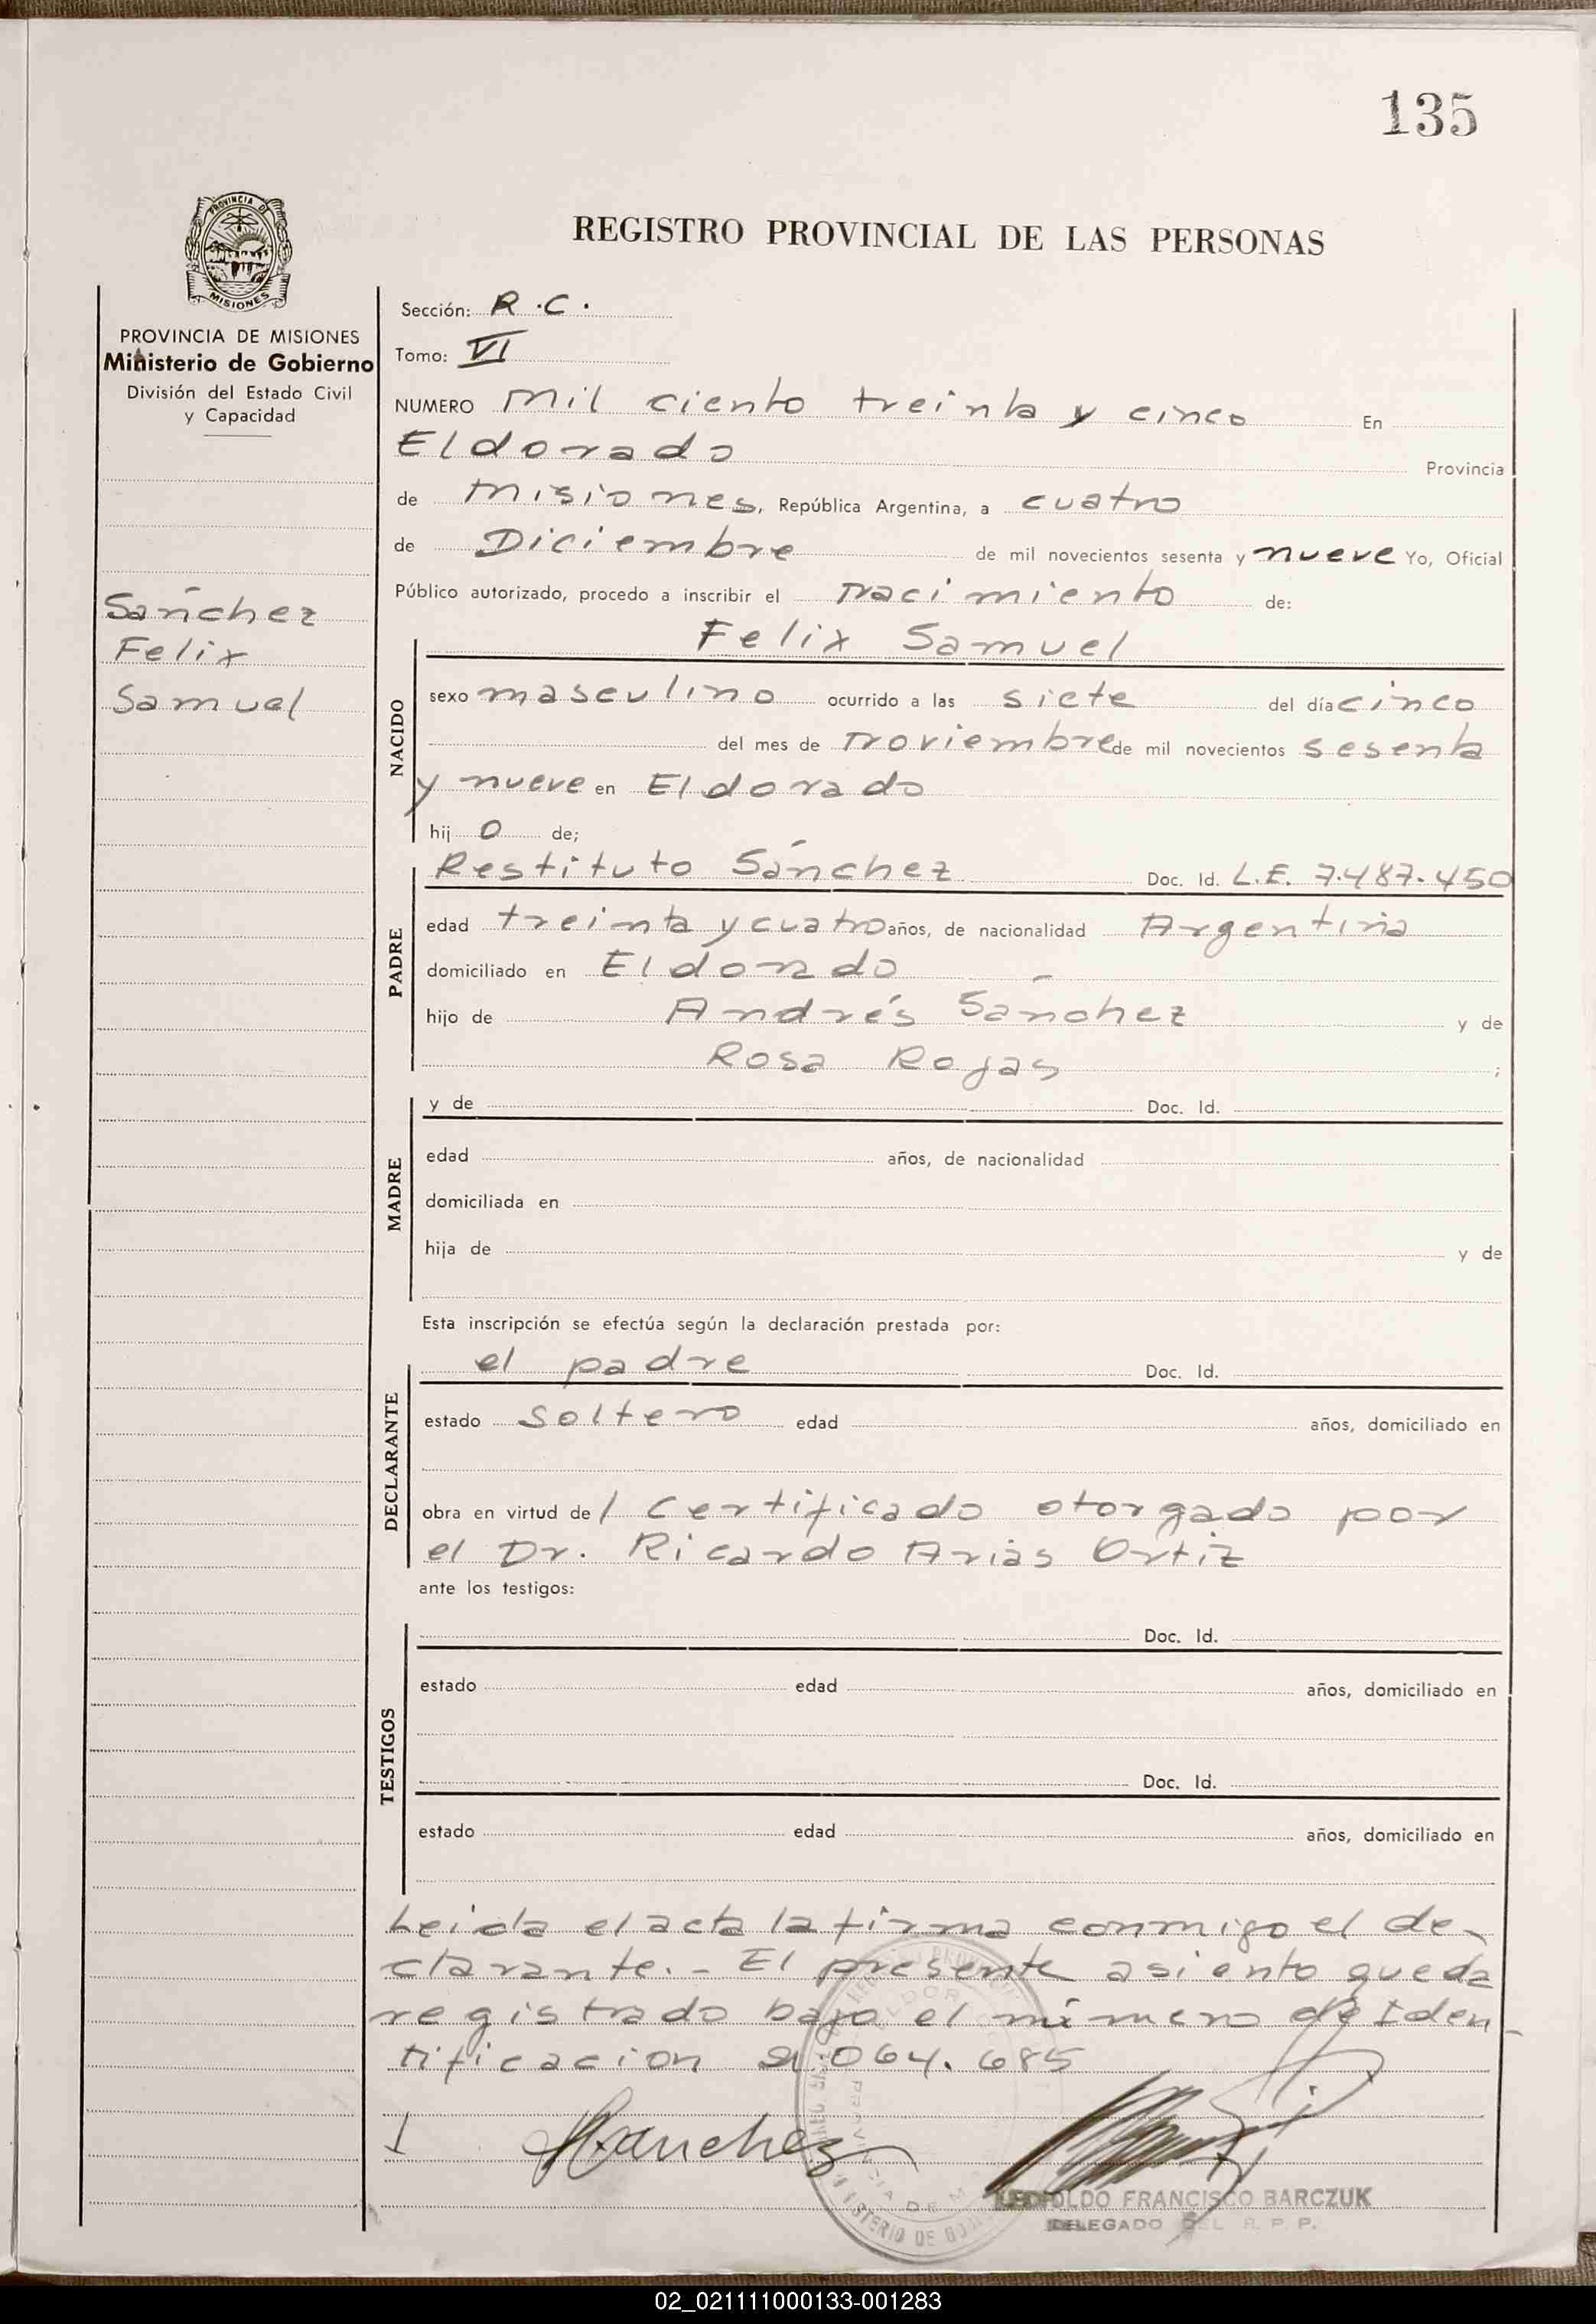 135
PROVINCIA DE
MISIONES
REGISTRO PROVINCIAL DE LAS PERSONAS
PROVINCIA DE MISIONES
Ministerio de Gobierno
División del Estado Civil
y Capacidad
Sánchez
Felix
Samuel
Sección: R.C.
Tomo: VI
NUMERO Mil ciento treinta y cinco En
Eldorado Provincia
de Misiones, República Argentina, a cuatro
de Diciembre de mil novecientos sesenta y nueve Yo, Oficial
Público autorizado, procedo a inscribir el nacimiento de:
Felix Samuel
NACIDO
sexo masculino ocurrido a las siete del día cinco
del mes de noviembre de mil novecientos sesenta
y nueve en Eldorado
hij o de;
Restituto Sánchez Doc. Id. L.E. 7.487.450
PADRE
edad treinta y cuatro años, de nacionalidad Argentina
domiciliado en Eldorado
hijo de Andrés Sánchez y de
Rosa Rojas ;
MADRE
y de Doc. Id.
edad años, de nacionalidad
domiciliada en
hija de y de
Esta inscripción se efectúa según la declaración prestada por:
DECLARANTE
el padre Doc. Id.
estado soltero edad años, domiciliado en
obra en virtud de / certificado otorgado por
el Dr. Ricardo Arias Ortiz
ante los testigos:
TESTIGOS
Doc. Id.
estado edad años, domiciliado en
Doc. Id.
estado edad años, domiciliado en
Leida el acta la firma conmigo el de-
clarante.- El presente asiento queda
registrado bajo el número de Iden-
tificacion 21.064.685
Sanchez
LEOPOLDO FRANCISCO BARCZUK
DELEGADO DEL R. P. P.
02_021111000133-001283